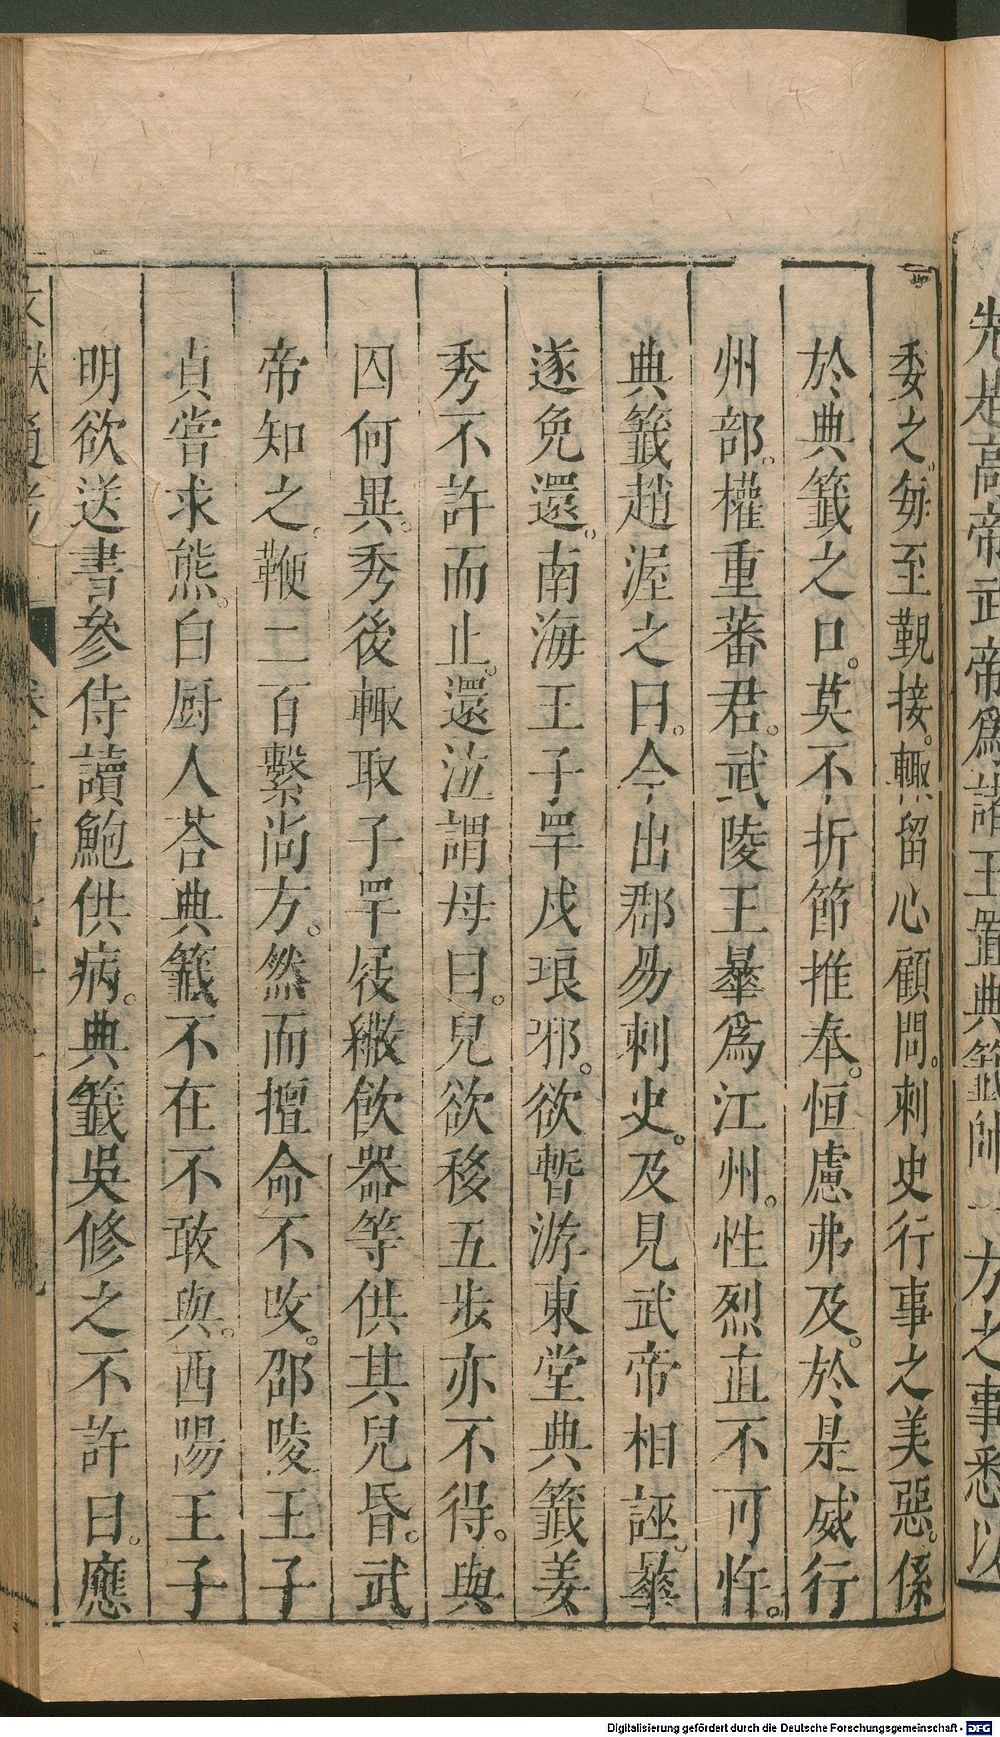 先是高帝武帝爲諸王置典籤帥一方之事悉以
委之每至覲接輙留心顧問刺史行事之美惡係
於典籤之口莫不折節推奉恒慮弗及於是威行
州部權重蕃君武陵王曅爲江州性烈直不可忤
典籤趙渥之曰今出郡易刺史及見武帝相誣曅
遂免還南海王子罕戍琅邪欲暫游東堂典籤姜
秀不許而止還泣謂母曰兒欲移五步亦不得與
囚何異秀後輙取子罕屐繖飲器等供其兒昏武
帝知之鞭二百繫尚方然而擅命不攺邵陵王子
貞嘗求熊白厨人荅典籤不在不敢與西陽王子
明欲送書參侍讀鮑供病典籤吳修之不許曰應
文獻通考
Digitalisierung gefördert durch die Deutsche Forschungsgemeinschaft - DFG